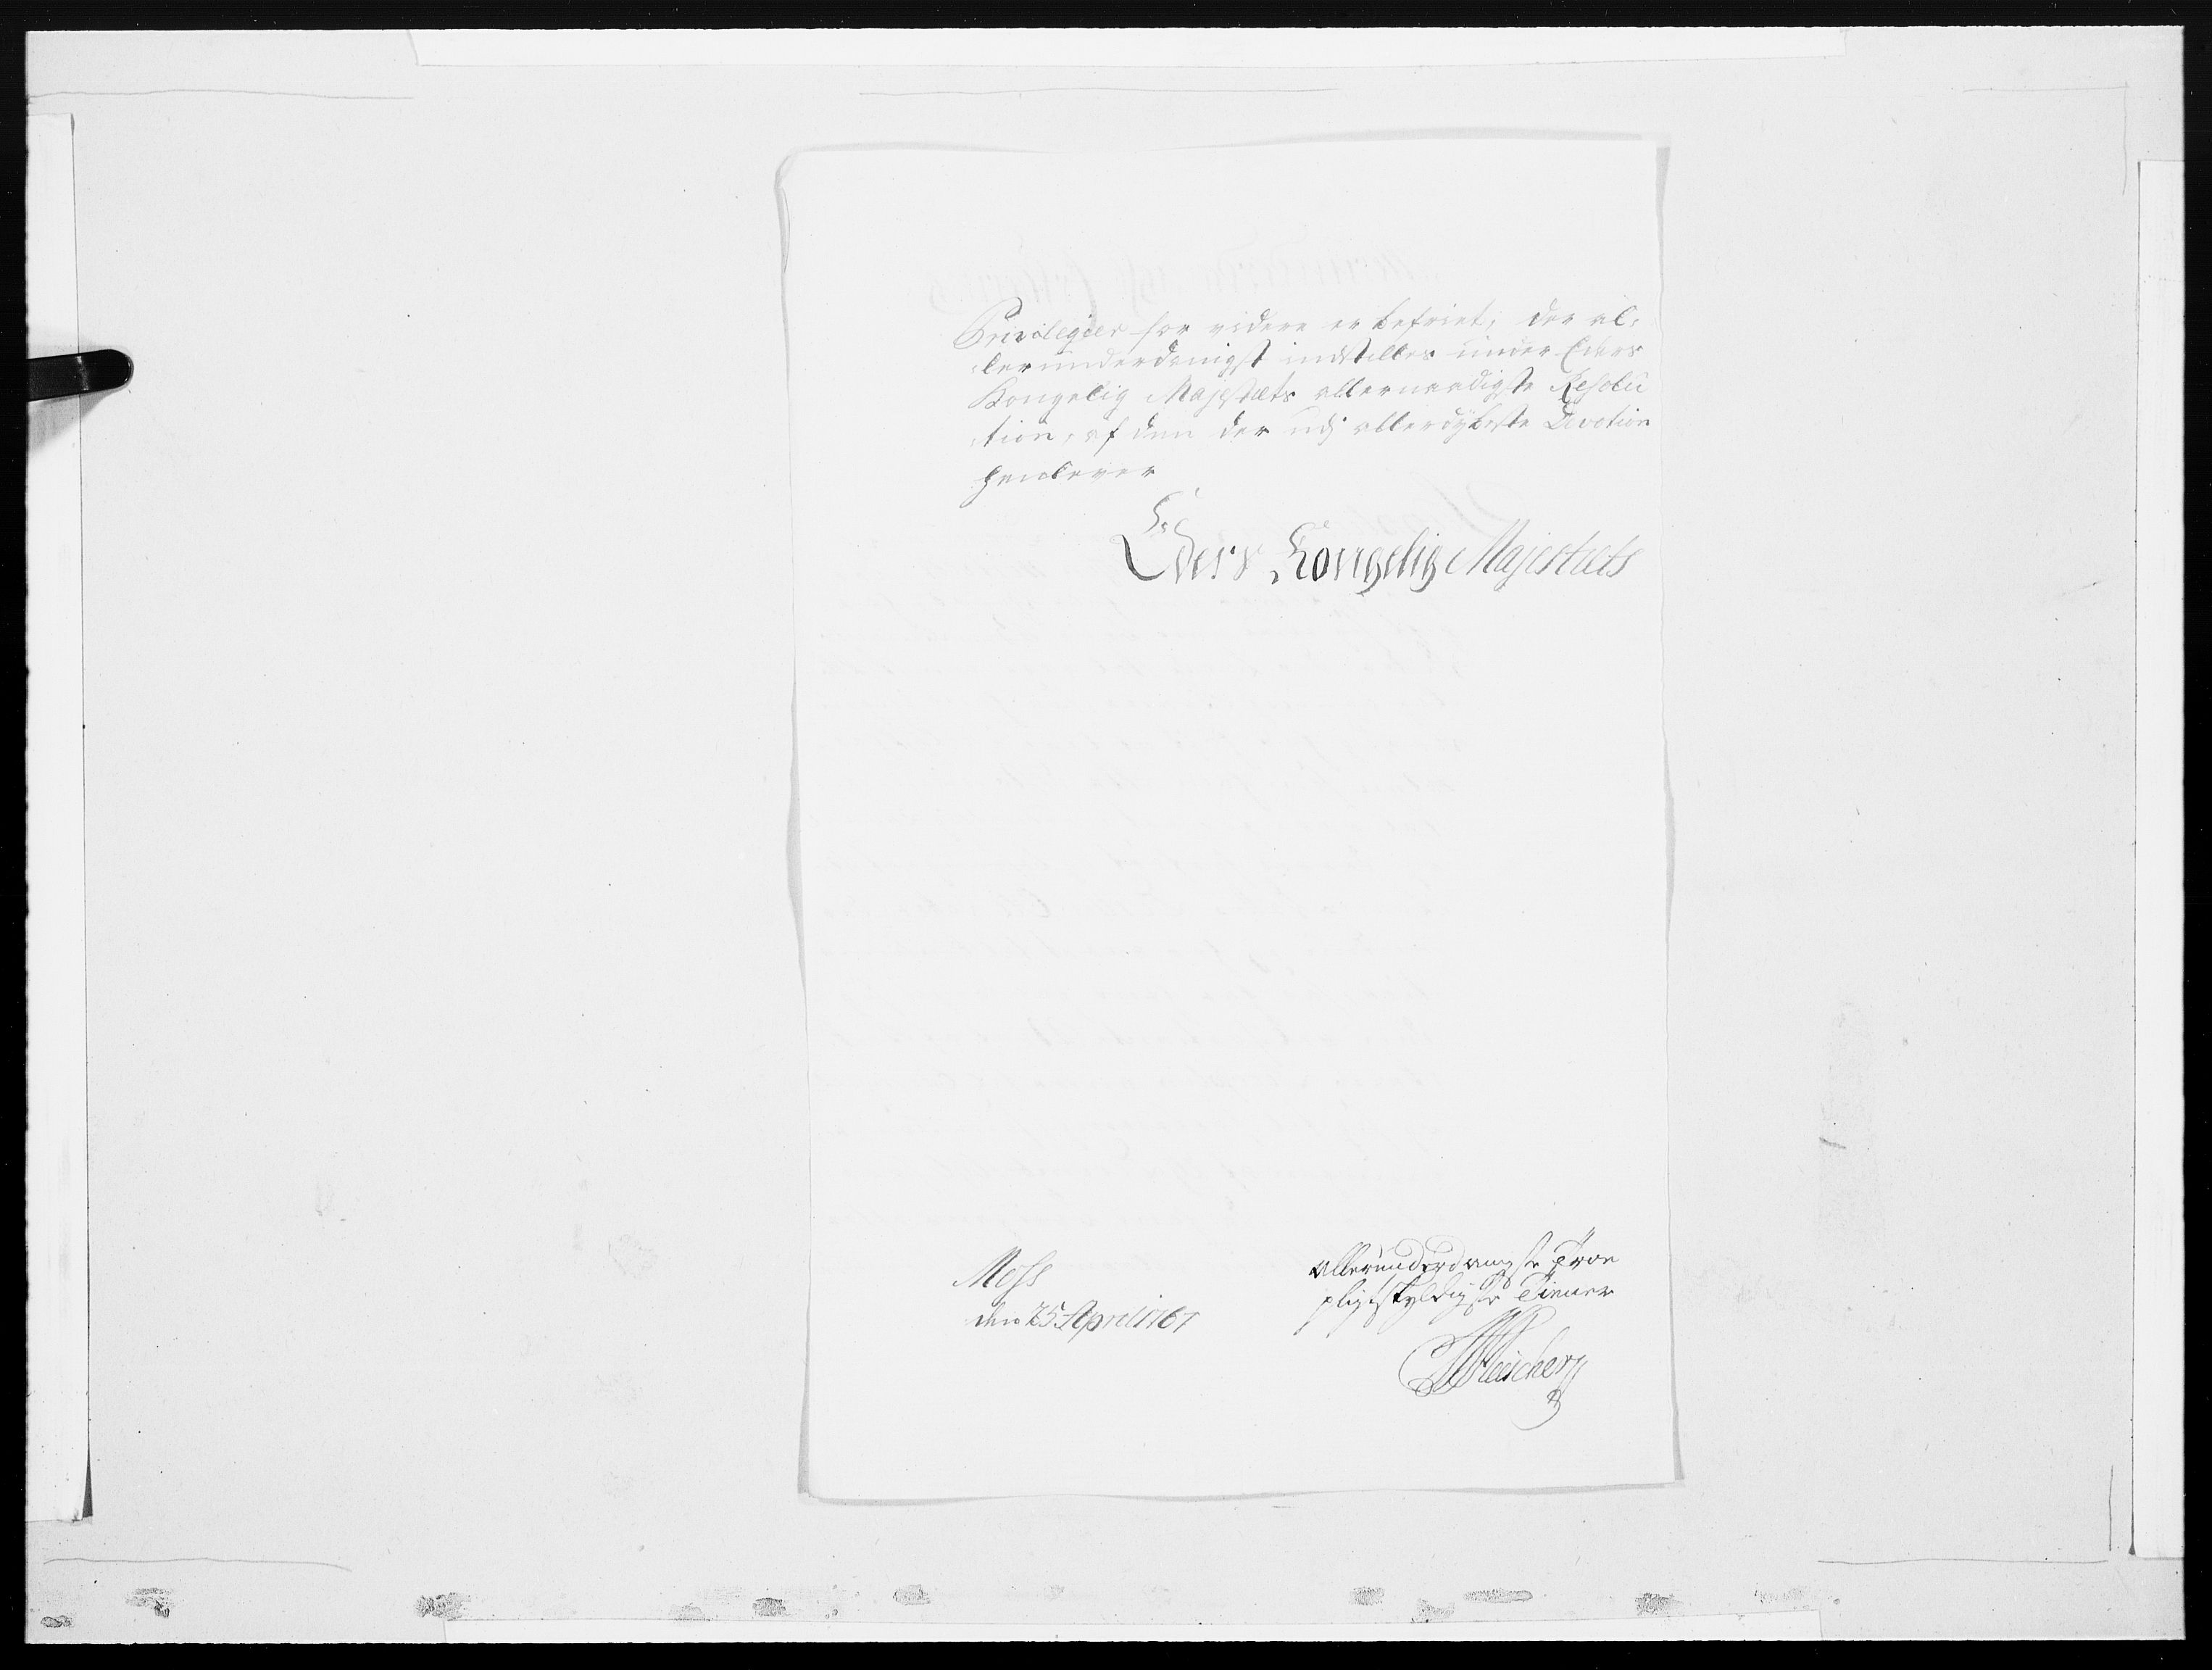 Privilegier for videre er befriet, der al-
lerunderdanigst indstilles under Eders
Kongelig Majestæts allernaadigste Resolu
tion, af den der udj allerdybeste Devotion
henlever
Eders Kongelig Majestæts
Moss
den 25 April 1767
allerunderdanigste Troe
pligtskyldigste Tiener